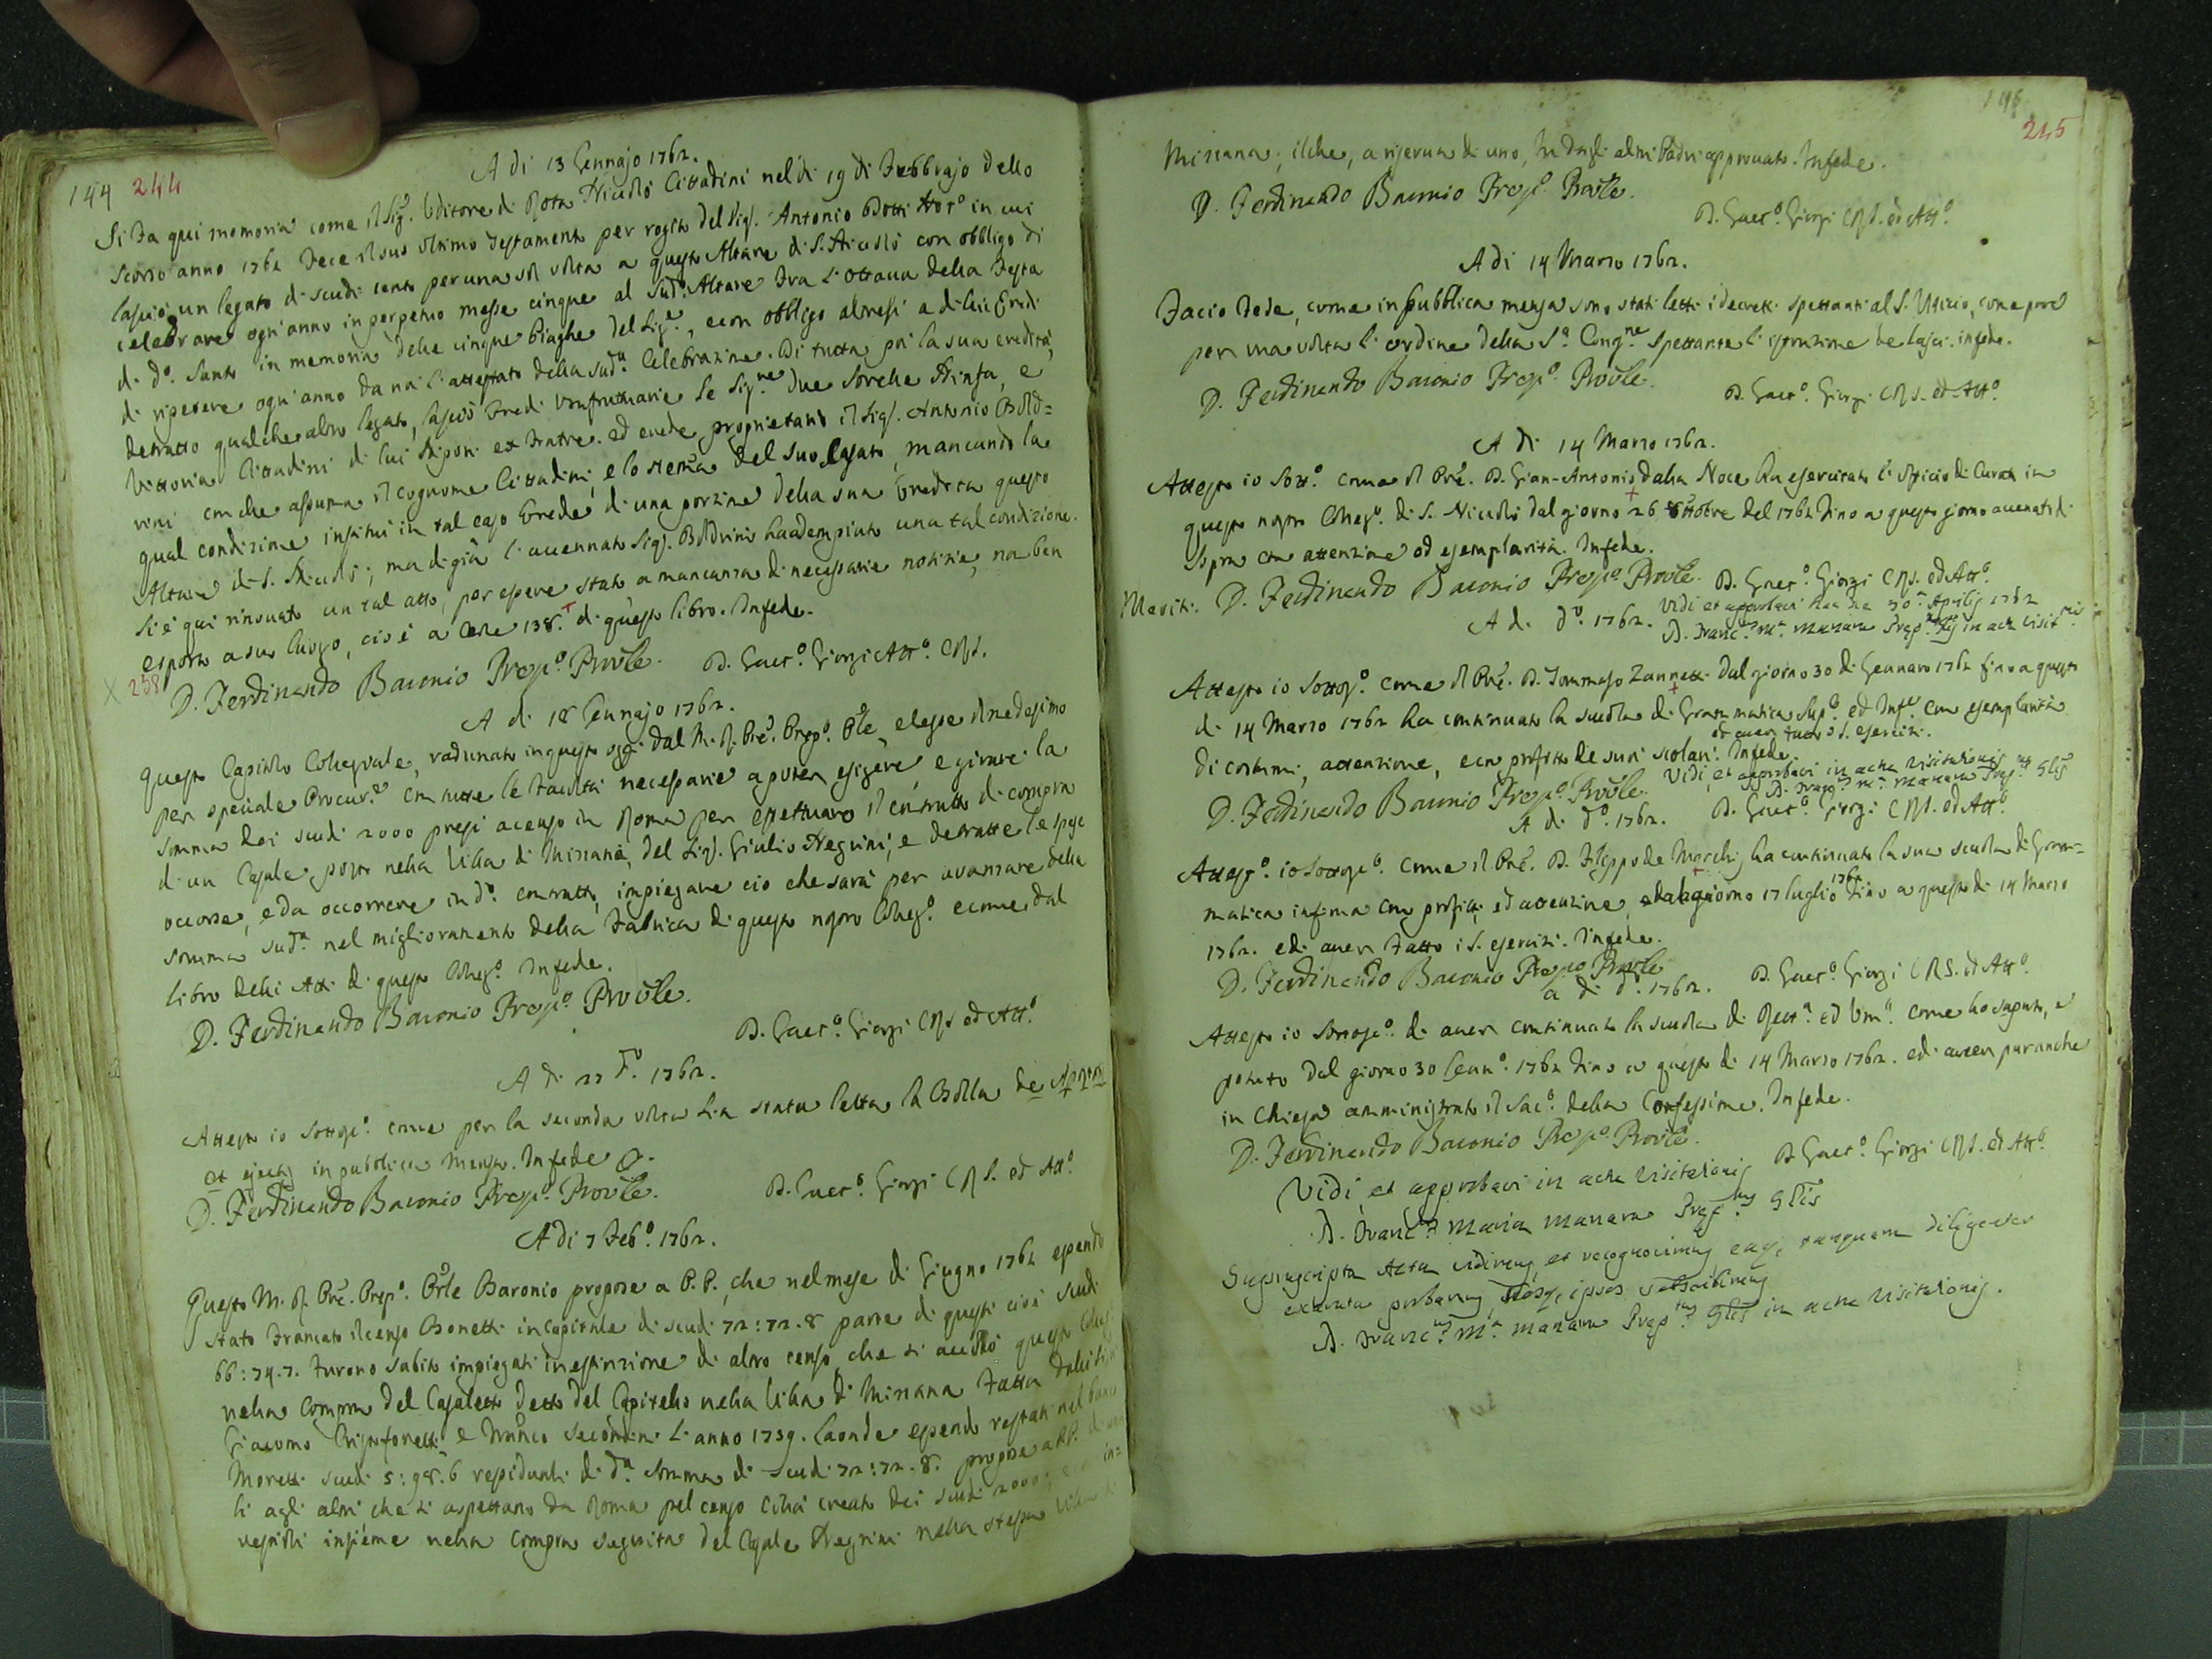 144 244
A di 13 Gennajo 1762.
Si fa qui memoria come il Sig.r Uditore di Rota Niccolò Cittadini nel dì 19 di Febbrajo dello
scorso anno 1761 fece il suo ultimo Testamento per rogito del Sig.r Antonio Botti Not.o in cui
lasciò un legato di scudi cento per una sol volta a questo Altare di S. Niccolò con obbligo di
celebrare ogn'anno in perpetuo messe cinque al sud.o Altare fra l'ottava della Festa
di d.o Santo in memoria delle cinque Piaghe del Sig.re, e con obbligo altresì a di lui Eredi
di ripetere ogn'anno da noi l'attestato della sud.a Celebrazione. Di tutta poi la sua eredità,
detratto qualche altro legato, lasciò Eredi Usufruttuarie le Sig.re due Sorelle Ninfa, e
Vittoria Cittadini di lui Nipoti ex Fratre, ed erede proprietario il Sig.r Antonio Bold=
rini con che assuma il cognome Cittadini, e lo stemma del suo Casato, mancando la
qual condizione instituì in tal caso Erede di una porzione della sua Eredità questo
Altare di S. Niccolò; ma di già l'accennato Sig.r Boldrini ha adempiuto una tal condizione.
Si è qui rinovato un tal atto, per essere stato a mancanza di necessarie notizie, non ben
esposto a suo luogo, cioè a carte 138. di questo libro. In fede.
X 238
D. Ferdinando Baronio Prep.o Prov.le D. Gaet.o Giorgi Att.o C.R.S.
A di 18 Gennajo 1762.
Questo Capitolo Collegiale, radunato in questo oggi dal M. R. Pre. Prep.o Prle, elesse il medesimo
per speciale Procur.re con tutte le facoltà necessarie a poter esigere, e girare la
somma dei scudi 2000 presi a censo in Roma per effettuare il contratto di compra
d'un Casale posto nella Villa di Missano, del Sig.r Giulio Negrini, e detratte le spese
occorse, e da occorrere in d.o contratto, impiegare ciò che sarà per avanzare della
somma sud.a nel miglioramento della Fabrica di questo nostro Colleg.o e come dal
libro delli Atti di questo Colleg.o In fede.
D. Ferdinando Baronio Prep.o Prov.le
D. Gaet.o Giorgi C.R.S. ed Att.o
A di 27 d.o 1762.
Attesto io sottos.o come per la seconda volta si è stata letta la Bolla de Apostatis
et ejectis in pubblica mensa. In fede
D. Ferdinando Baronio Prep.o Prov.le
D. Gaet.o Giorgi C.R.S. ed Att.o
A di 7 Feb.o 1762.
Questo M. R. Pre. Prep.o Prle Baronio propose a P.P., che nel mese di Giugno 1761 essendo
stato francato il censo Bonetti in capitale di scudi 72:72.8 parte di questi cioè scudi
66:74.7. furono subito impiegati in estinzione di altro censo, che si accollò questo Colleg.
nella Compra del Casaletto detto del Capitello nella Villa di Missano fatta dalli Sig.
Giacomo Cristofoletti e Franco Secondini l'anno 1759. laonde essendo restati nel banco
Moretti scudi 5:98.6 residuali di d.a somma di scudi 72:72.8. propose a PP. di
li agli altri che si aspettano da Roma pel censo colà creato dei scudi 2000; e in=
vestirli insieme nella Compra seguita del Casale Negrini nella stessa Villa di
145
245
Missano; il che, a riserva di uno, fu dagli altri Padri approvato. In fede.
D. Ferdinando Baronio Prep.o Prov.le
D. Gaet.o Giorgi C.R.S. ed Att.o
A di 14 Marzo 1762.
Faccio fede, come in pubblica mensa sono stati letti i decreti spettanti al S. Uffizio, come pure
per una volta l'ordine della S.a Cong.ne spettante l'istruzione de laici. in fede.
D. Ferdinando Baronio Prep.o Prov.le
D. Gaet.o Giorgi C.R.S. ed Att.o
A di 14 Marzo 1762.
Attesto io Sott.o come il Pre. D. Gian-Antonio dalla Noce ha esercitato l'Officio di Curato in
questo nostro Colleg.o di S. Niccolò dal giorno 26 Ottobre del 1761 fino a questo giorno accennato di
sopra con attenzione ed esemplarità. In fede.
Meriti: D. Ferdinando Baronio Prep.o Prov.le D. Gaet.o Giorgi C.R.S. ed Att.o
A di d.o 1762. Vidi et approbavi hac die 30 Aprilis 1762
D. Franc.s M.a Manara Prep.tus Glis in actu visit.nis
Attesto io sottos.o come il Pre. D. Tommaso Zannetti dal giorno 30 di Gennaro 1761 fino a questo
di 14 Marzo 1762 ha continuato la scuola di Grammatica Sup.e ed Inf.e con esemplarità
di costumi, attenzione, e con profitto de suoi scolari. In fede.
et aver fatto i S. esercizi.
Vidi, et approbavi in actu visitationis
D. Franc.s M.a Manara Prep.tus Glis
D. Ferdinando Baronio Prep.o Prov.le D. Gaet.o Giorgi C.R.S. ed Att.o
A di d.o 1762.
Attest.o io Sottos.o come il Pre. D. Filippo de Marchi ha continuato la sua scuola di Gram=
matica infima con profitto, ed attenzione, dal giorno 17 luglio 1761 fino a questo di 14 Marzo
1762. ed aver fatto i S. esercizi. In fede.
D. Ferdinando Baronio Prep.o Prov.le
D. Gaet.o Giorgi C.R.S. ed Att.o
a di d.o 1762.
Attesto io Sottos.o di aver continuato la scuola di Rett.a ed Um.a come ho saputo, e
potuto dal giorno 30 Genn.o 1761 fino a questo di 14 Marzo 1762. ed aver pur anche
in Chiesa amministrato il Sac.o della Confessione. In fede.
D. Ferdinando Baronio Prep.o Prov.le
D. Gaet.o Giorgi C.R.S. ed Att.o
Vidi, et approbavi in actu visitationis
D. Franc.s Maria Manara Prep.tus Glis
Suprascripta Acta vidimus, et recognovimus, eaq. tanquam diligenter
exarata probamus, nosq. ipsos subscribimus
D. Franc.s M.a Manara Prep.tus Glis in actu visitationis.